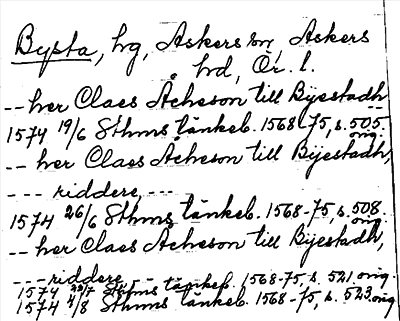 Bysta, hg, Askers sn, Askers
hd, Ör. l.
-- her Claes Åcheson till Byestadh --
1574 19/6 Sthms tänkeb. 1568-75, s. 505 orig.
-- her Claes Åcheson till Bijestadh,
--- riddere, ---
1574 26/6 Sthms tänkeb. 1568-75, s. 508 orig.
-- her Claes Åcheson till Bijestadh,
--- riddere --
1574 Sthms tänkeb. 1568-75, s. 521 orig.
1574 4/8 Sthms tänkeb. 1568-75, s. 523 orig